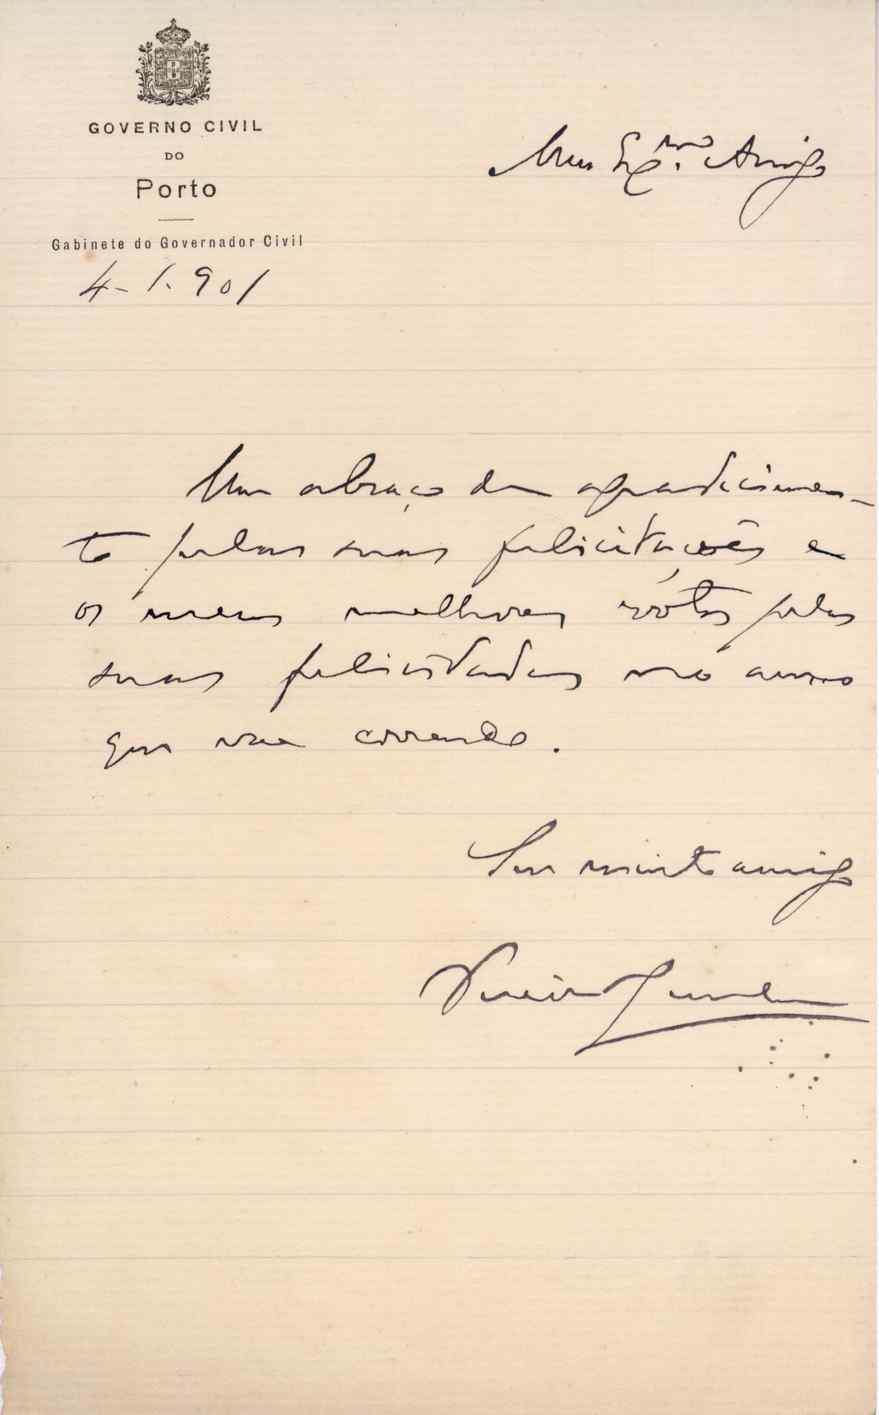 GOVERNO CIVIL
DO
Porto
Gabinete do Governador Civil
4-1.901
Meu Exmo. Amigo
Um abraço de agradecimen-
to pelas suas felicitações e
os meus melhores vótos pelas
suas felicidades no anno
que vae correndo.
Seu muito amigo